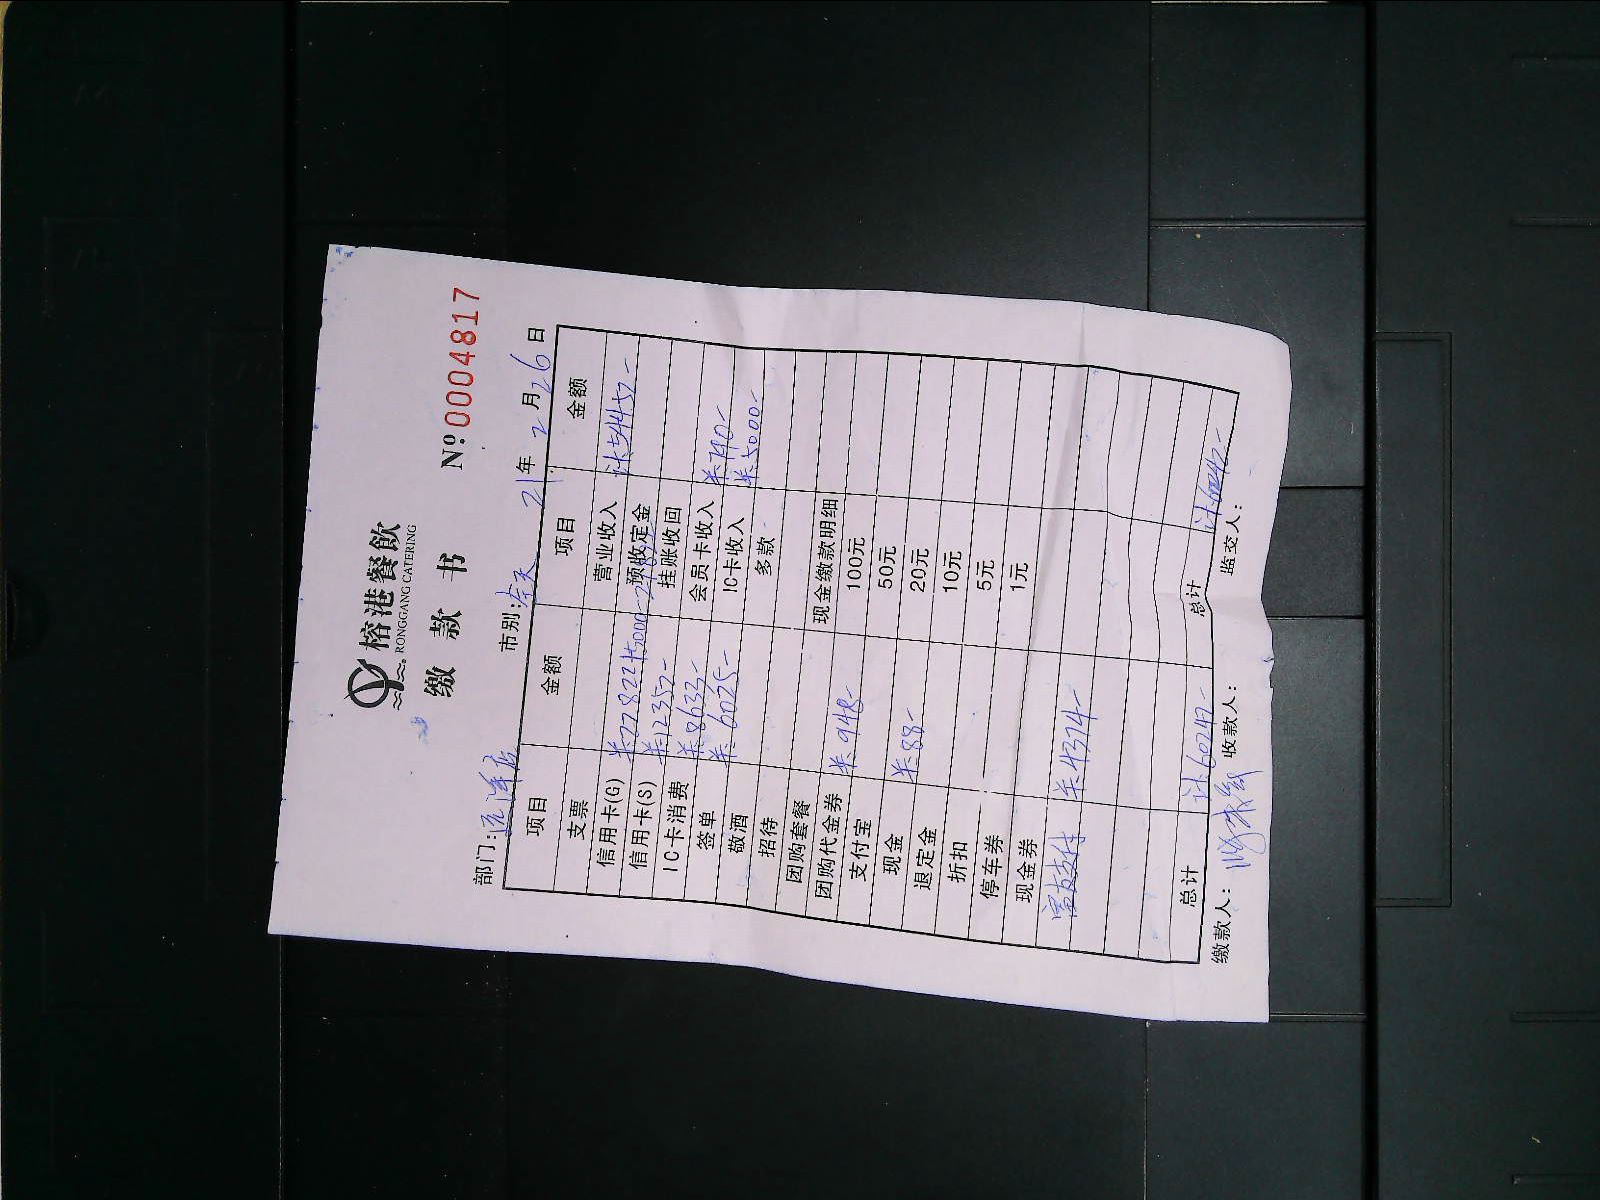 榕港餐飲
RONGGANG CATERING
缴 款 书
Nº:0004817
部门: 市别:全天 21年 2月26日
项目 金额 项目 金额
支票 营业收入 计54457-
信用卡(G) 预收定金
信用卡(S) 羊1235 挂账收回
IC卡消费 羊8633- 会员卡收入 羊790-
签单 羊6025- IC卡收入 羊5000-
敬酒 多款
招待
团购套餐 现金缴款明细
团购代金券 羊948- 100元
支付宝 50元
现金 羊88- 20元
退定金 10元
折扣 5元
停车券 1元
现金券
富友支付 羊4374-
总计 计60247- 总计 计60247-
缴款人: 收款人: 监交人: